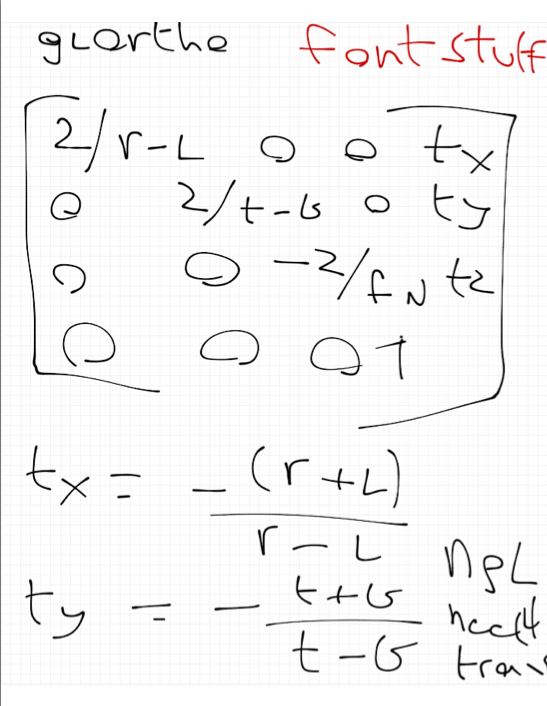 glortho fontstuff
2/r-L 0 0 tx
0 2/t-b 0 ty
0 0 -2/f N tz
0 0 0 1
tx = -(r+L)
r-L
ty = - t+b
t-b